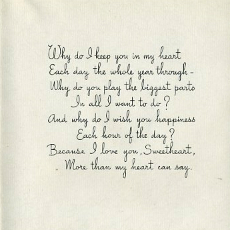 Why do I keep you in my heart
Each day the whole year through -
Why do you play the biggest parts
In all I want to do?
And why do I wish you happiness
Each hour of the day?
Because I love you, Sweetheart,
More than my heart can say.